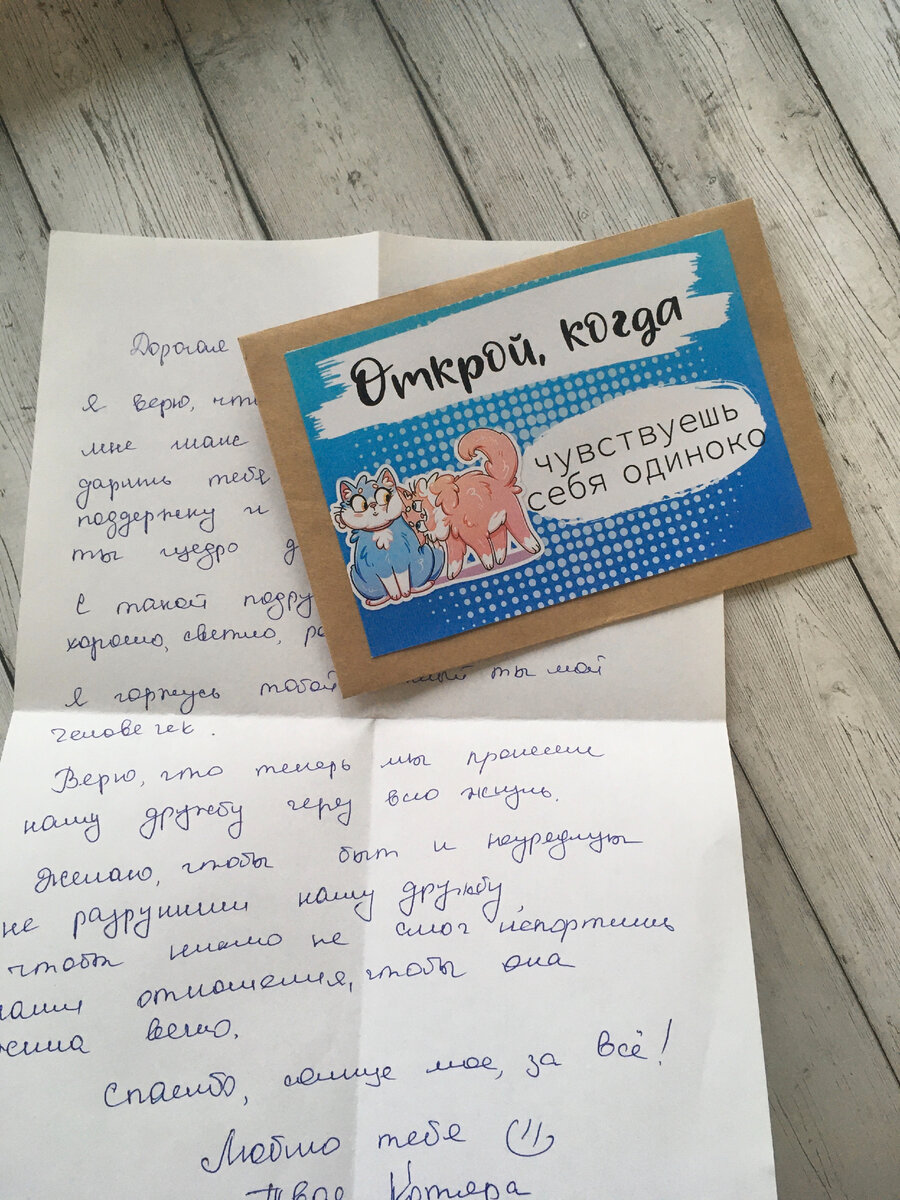 Открой, когда
чувствуешь
себя одиноко
Дорогая
Я верю, что
мне шанс
дарить тебе
поддержку и
ты щедро д
С такой подру
хорошо, светло, ра
Я горжусь тобой ты мой
человечек.
Верю, что теперь мы пронесем
нашу дружбу через всю жизнь.
Желаю, чтобы быт и неурядицы
не разрушили нашу дружбу,
чтобы никто не смог испортить
наши отношения, чтобы она
вечно.
Спасибо, солнце мое, за всё!
Люблю тебя
Твоя Котяра